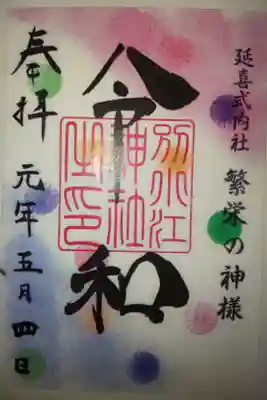 延喜式内社
繁栄の神様
令和
別小江
神社
之印
奉拝 元年五月四日